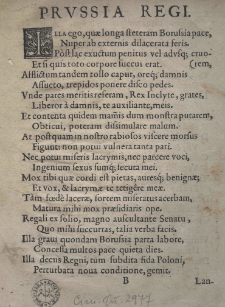 PRVSSIA REGI.
ILla ego, quæ longa steteram Borussia pace,
Nuper ab externis dilacerata feris.
Postquam exuctum penitus vel advsq; cruo-
Et si quis toto corpore succus erat. (rem,
Afflictum tandem tollo caput, oreq; damnis
Assueto, trepidos ponere disco pedes.
Vnde pares meritis referam, Rex Inclyte, grates,
Liberor à damnis, te auxiliante, meis.
Et contenta quidem mansi dum monstra putarem,
Obticui, poteram dissimulare malum.
At postquam in nostro rabiosos viscere morsus
Figunt non potui vulnera tanta pati.
Nec potui miseris lacrymis, nec parcere voci,
Ingenium sexus sum secuta mei.
Mox tibi quæ cordi est pietas, autesq; benignæ
Et vox, & lacrymæ te tetigêre meæ.
Tàm fœdè laceræ, sortem miseratus acerbam,
Matura mihi mox præsiditaris ope.
Regali ex solio, magno auscultante Senatu,
Quo mihi succurras, talia verba facis.
Illa graui quondam Borussia parta labore,
Concessa multos pace quieta dies.
Illa decus Regni, tum subdita fida Poloni,
Perturbata noua conditione, gemit.
B Lan-
Cim. Qu. 2977